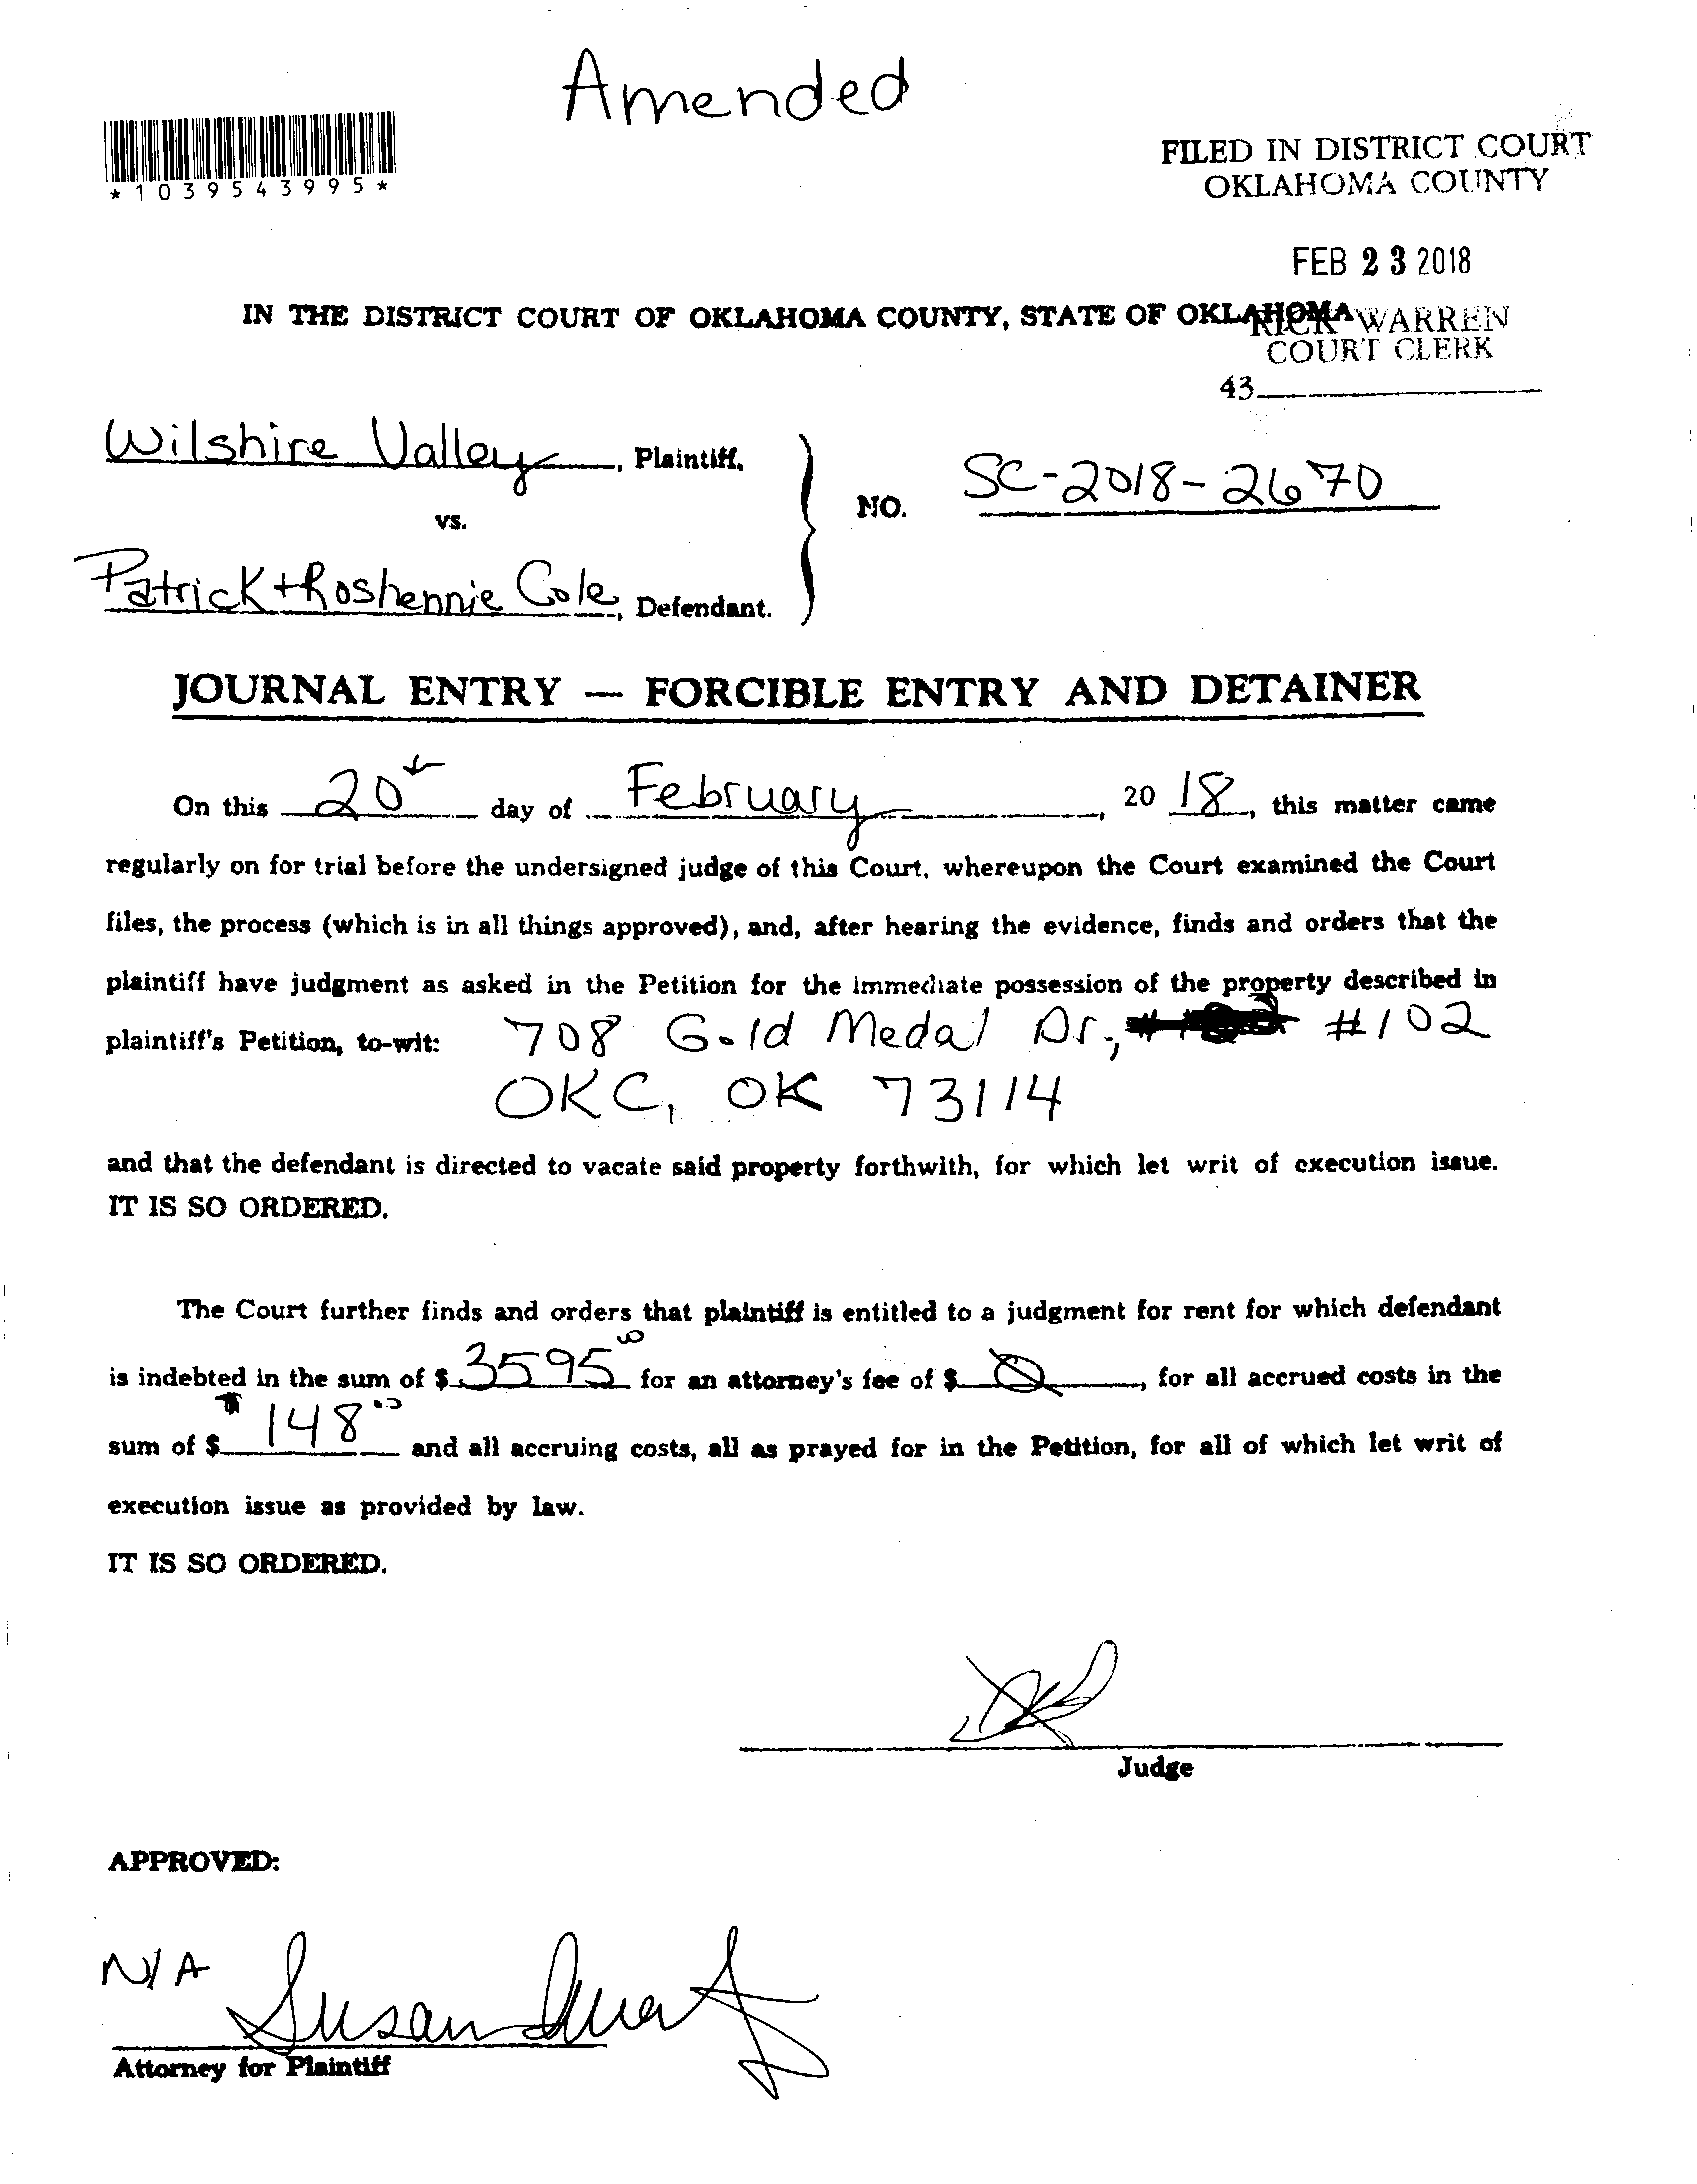 Amended
*1039543995*
FILED IN DISTRICT COURT
OKLAHOMA COUNTY
FEB 23 2018
IN THE DISTRICT COURT OF OKLAHOMA COUNTY, STATE OF OKLAHOMA
RICK WARREN
COURT CLERK
43
Wilshire Valley, Plaintiff,
vs.
NO. SC-2018-2670
Patrick + Roshennie Cole, Defendant.
JOURNAL ENTRY — FORCIBLE ENTRY AND DETAINER
On this 20th day of February, 20 18, this matter came
regularly on for trial before the undersigned judge of this Court, whereupon the Court examined the Court
files, the process (which is in all things approved), and, after hearing the evidence, finds and orders that the
plaintiff have judgment as asked in the Petition for the immediate possession of the property described in
plaintiff's Petition, to-wit: 708 Gold Medal Dr., #102
OKC, OK 73114
and that the defendant is directed to vacate said property forthwith, for which let writ of execution issue.
IT IS SO ORDERED.
The Court further finds and orders that plaintiff is entitled to a judgment for rent for which defendant
is indebted in the sum of $ 3595 00 for an attorney's fee of $ 0, for all accrued costs in the
sum of $ 148 00 and all accruing costs, all as prayed for in the Petition, for all of which let writ of
execution issue as provided by law.
IT IS SO ORDERED.
Judge
APPROVED:
N/A Susan
Attorney for Plaintiff